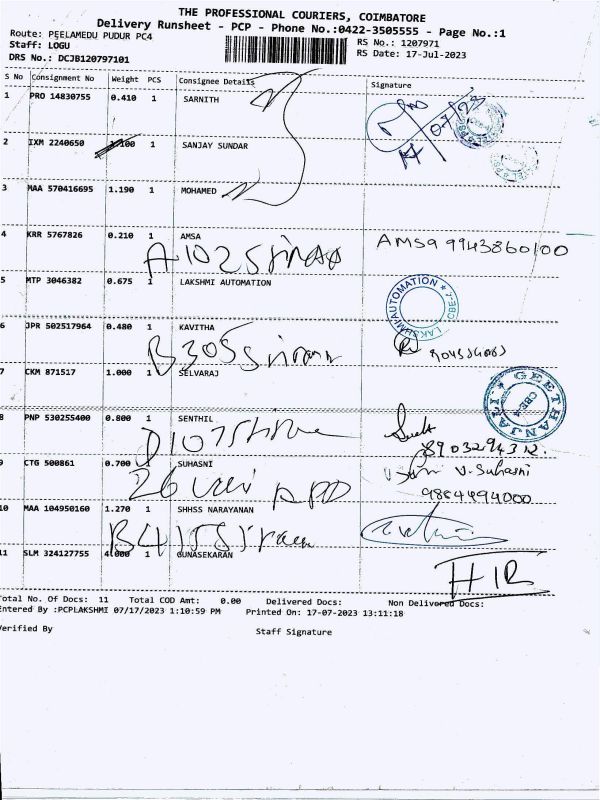 THE PROFESSIONAL COURIERS, COIMBATORE
Delivery Runsheet - PCP - Phone No.:0422-3505555 - Page No.:1
Route: PEELAMEDU PUDUR PC4
RS No.: 1207971
Staff: LOGU
RS Date: 17-Jul-2023
DRS No.: DCJB120797101
S No Consignment No Weight PCS Consignee Details Signature
1 PRO 14830755 0.410 1 SARNITH
17/07/23
2 IXM 2240650 1 SANJAY SUNDAR
3 MAA 570416695 1.190 1 MOHAMED
4 KRR 5767826 0.210 1 AMSA
AMSA 9943860100
A1025
5 MTP 3046382 0.675 1 LAKSHMI AUTOMATION
LAKSHMI AUTOMATION
6 JPR 502517964 0.480 1 KAVITHA
B305
7 CKM 871517 1.000 1 SELVARAJ
GEETHANJALI
CBE-4
8 PNP 530255400 0.800 1 SENTHIL
D107
8903294312.
9 CTG 500861 0.700 1 SUHASNI
V. Suhasni
26
9884494000
10 MAA 104950160 1.270 1 SHHSS NARAYANAN
B415
11 SLM 324127755 4.000 1 GUNASEKARAN
Total No. Of Docs: 11 Total COD Amt: 0.00 Delivered Docs: Non Delivered Docs:
Entered By :PCPLAKSHMI 07/17/2023 1:10:59 PM Printed On: 17-07-2023 13:11:18
Verified By
Staff Signature